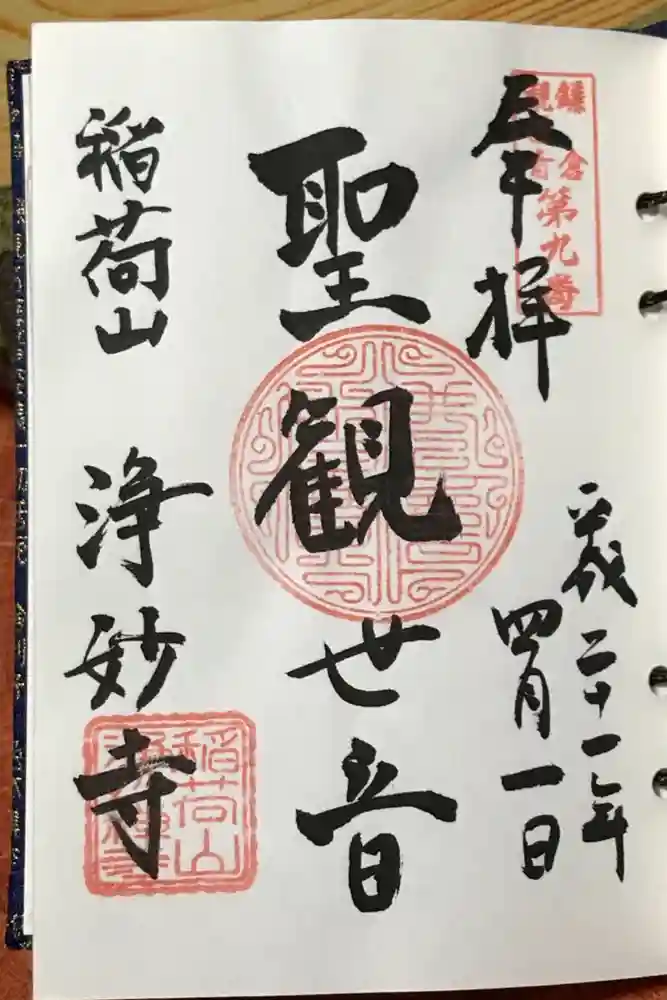 奉拝
鎌倉
観音
第九番
平成二十一年
四月一日
聖観世音
稲荷山
浄妙寺
稲荷山